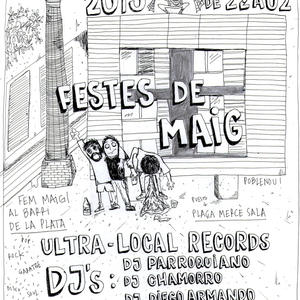 2015
DE 22A02
FESTES DE
MAIG
POBLENOU!
FEM MAGI
AL BARRI
DE LA PLATA
PLAÇA MERCÈ SALA
POP
ROCK
GARATGE
DISCO
SOUL
ULTRA-LOCAL RECORDS
DJ's:
DJ PARROQUIANO
DJ CHAMORRO
DJ DIEGO ARMANDO